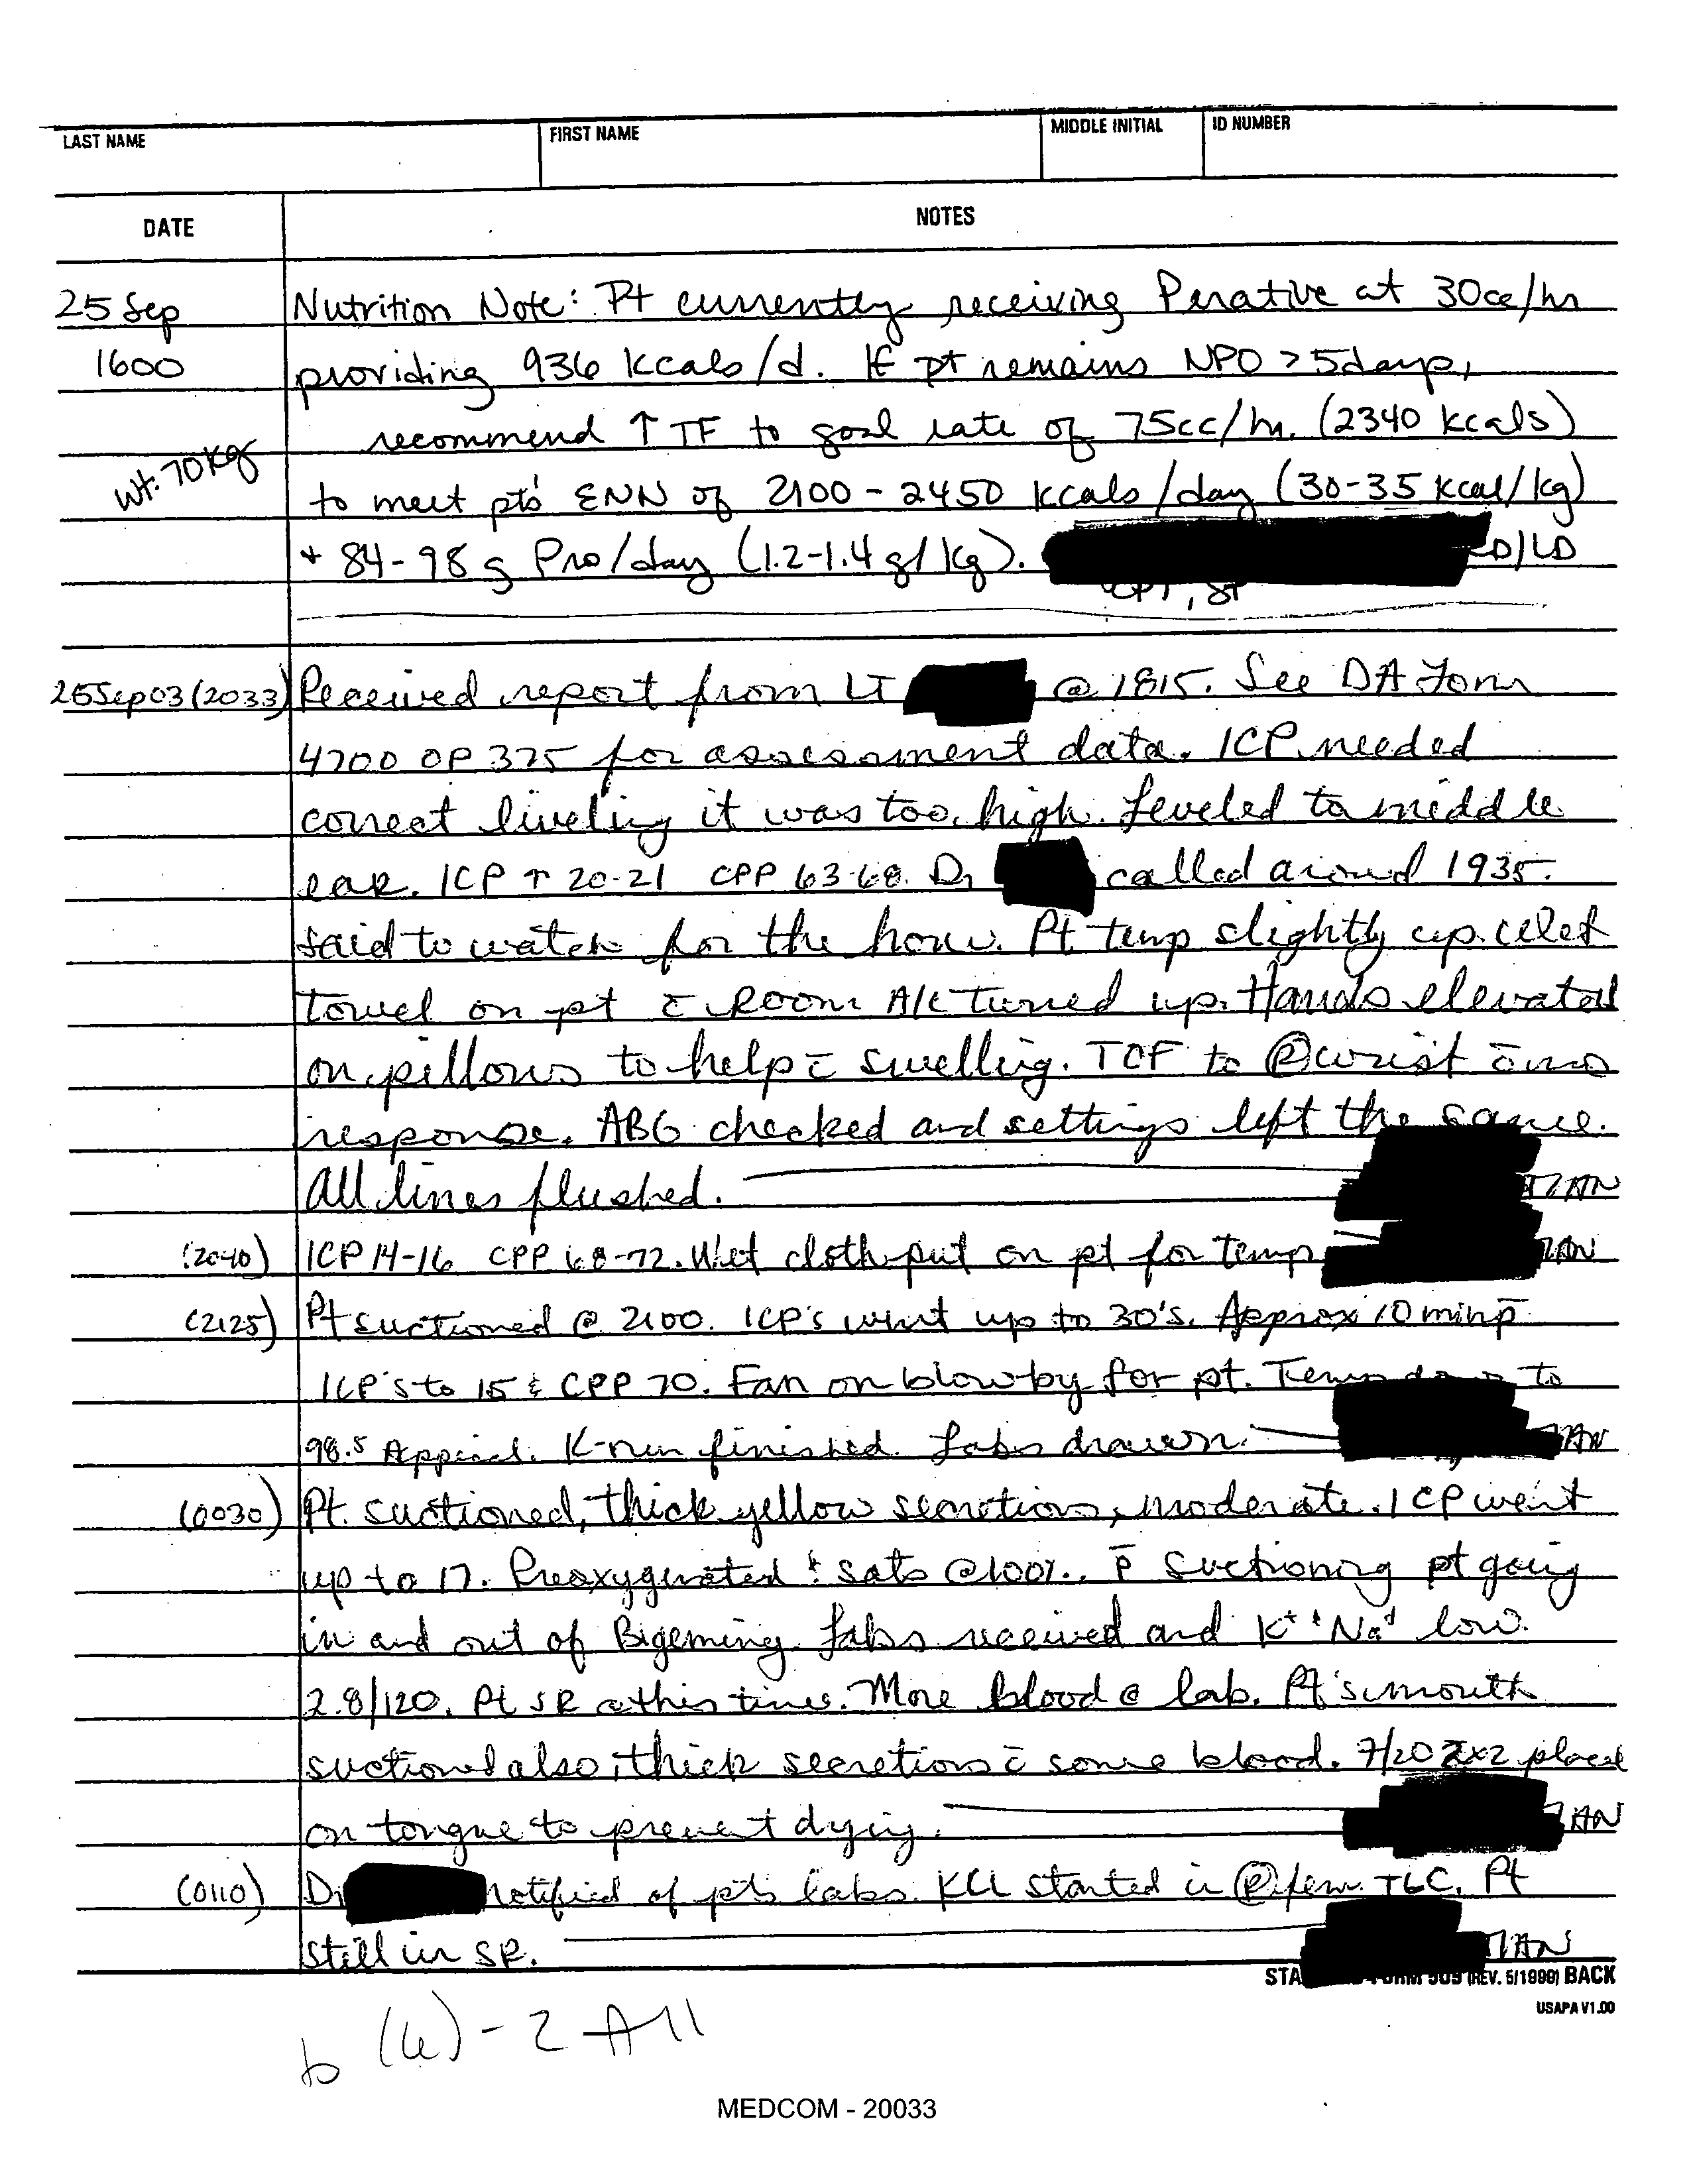 LAST NAME FIRST NAME MIDDLE INITIAL ID NUMBER
DATE NOTES
25 Sep Nutrition Note: Pt currently receiving Perative at 30cc/hr
1600 providing 936 kcals/d. If pt remains NPO >5days,
recommend ↑ TF to goal rate of 75cc/hr. (2340 kcals)
Wt: 70kg
to meet pts' ENN of 2100-2450 kcals/day (30-35 kcal/kg)
+ 84-98 g Pro/day (1.2-1.4 g/kg). RD/LD
CPT, SP
25Sep03 (2033) Received report from LT @ 1815. See DA Form
4700 OP 375 for assessment data. ICP needed
correct liveling it was too high. Leveled to middle
ear. ICP ↑ 20-21 CPP 63-68. Dr called around 1935.
Said to watch for the hour. Pt temp slightly up. Wet
towel on pt c̄ Room A/C turned up. Hands elevated
on pillows to help c̄ swelling. TOF to Ⓡ wrist
response. ABG checked and settings left the same.
All lines flushed. AN
(2040) ICP 14-16 CPP 68-72. Wet cloth put on pt for temp AN
(2125) Pt suctioned @ 2100. ICP's went up to 30's. Approx 10 min p̄
ICP's to 15 & CPP 70. Fan on blowby for pt. Temp down to
98.5 K-run finished. Labs drawn. AN
(0030) Pt. suctioned, thick yellow secretions, moderate. ICP went
up to 17. Preoxygenated & sats @ 100%. p̄ Suctioning pt going
in and out of Bigeminy. Labs received and K⁺ & Na⁺ low.
2.8/120. Pt SR @ this time. More blood @ lab. Pt's mouth
suctioned also, thick secretions c̄ some blood. 2x2 placed
on tongue to prevent drying. AN
(0110) Dr notified of pt's labs. KCL started in Ⓡ fem TLC. Pt
still in SR. AN
STA FORM 509 (REV. 5/1999) BACK
USAPA V1.00
b (6)-2 All
MEDCOM - 20033